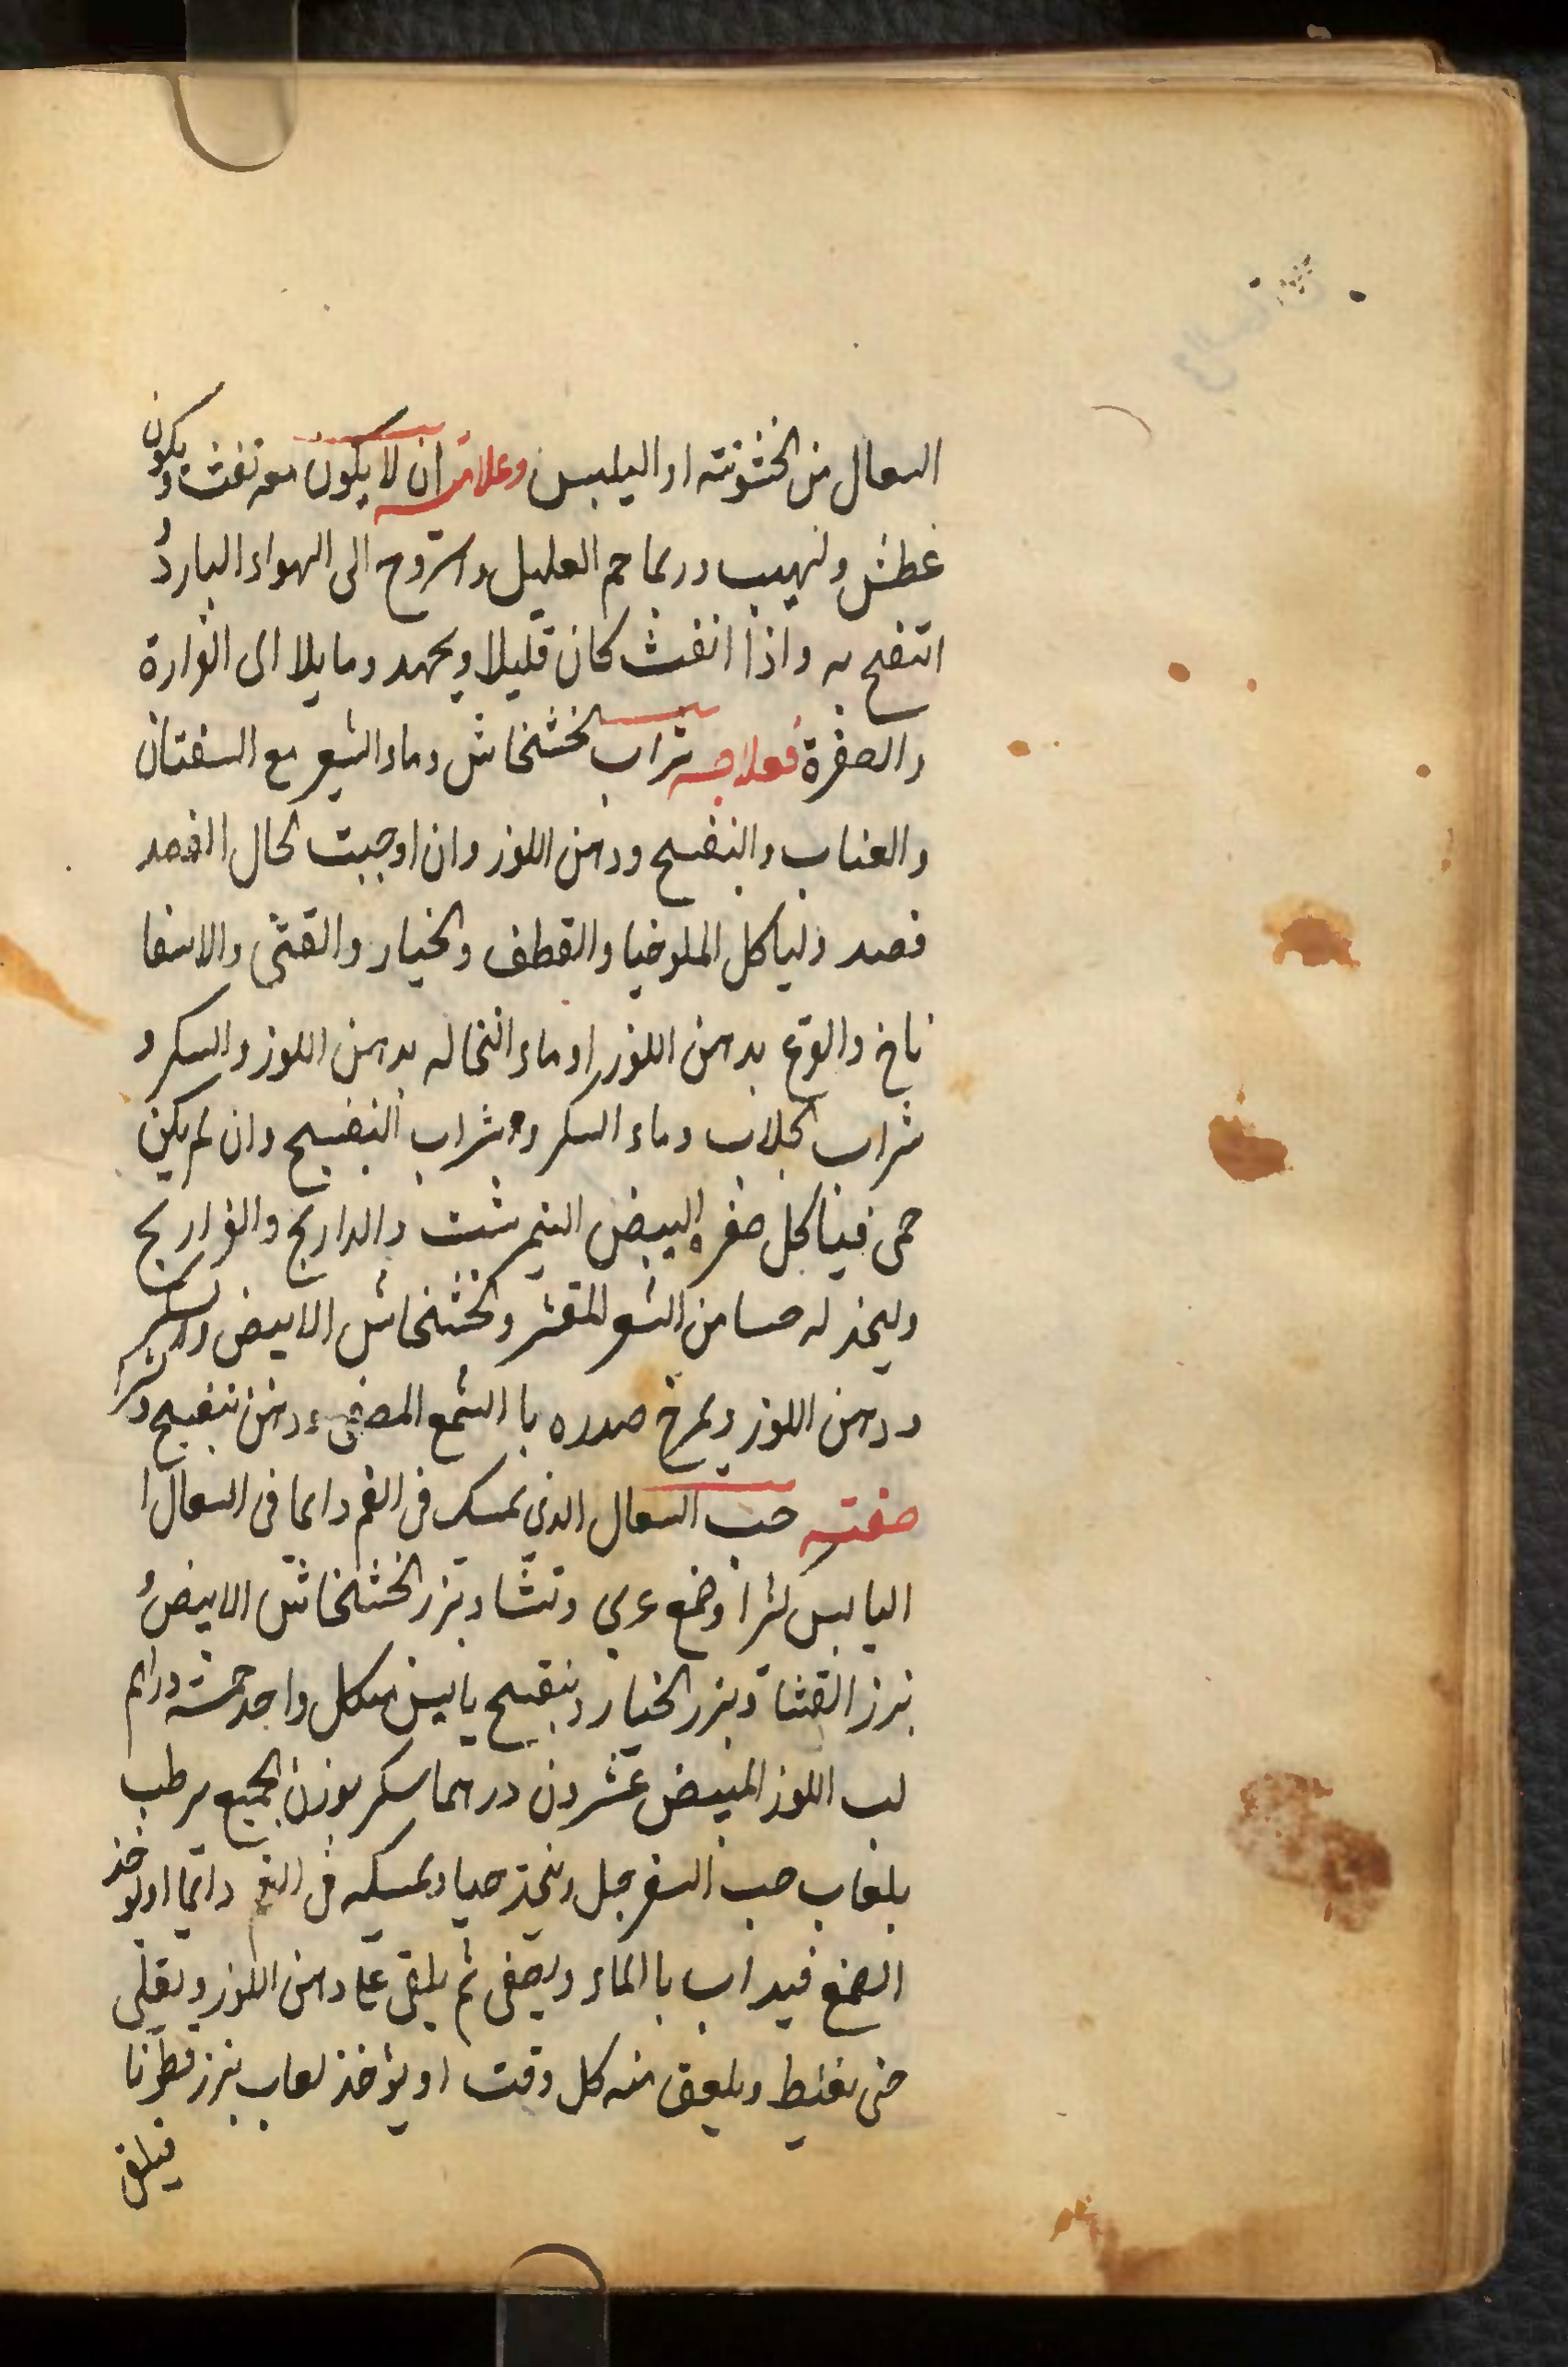 السعال من الخشونته او اليلبس وعلامته ان لا يكون معه نفث ويكون
عطش ولهيب وربما حم العليل واستروح الى الهواء البارد
انتفح به واذا انفث كان قليلا وبجهد ومايلا الى المرارة
والصفرة فعلاجه شراب الخشخاش وماء الشعير مع السفتان
والعناب والبنفسج ودهن اللوز وان اوجبت الحال الفصد
فصد ولياكل الملوخيا والقطف والخيار والقثى والاسفا
ناخ والقرع بدهن اللوز او ماء النخاله بدهن اللوز والسكر و
شراب الجلاب وماء السكر وشراب البنفسج وان لم يكن
حمى فياكل صفره البيض النيمرشت والدراريج والفراريج
وليتخذ له حسا من الشعير المقشر والخشخاش الابيض والسكر
ودهن اللوز ويمرخ صدره با الشمع المصفى ودهن بنفسج
صفته حب السعال الذي يمسك في الفم دايما في السعال ا
اليابس كثرا وصمغ عربي ونشا وبزر الخشخاش الابيض
بزر القثاة وبزر الخيار وبنفسج يابس من كل واحد خمسة دراهم
لب اللوز المبيض عشرون درهما سكر بوزن الجميع يرطب
بلعاب حب السفرجل ويتخذ حبا ويمسكه في الفم دائما او يؤخذ
الصمغ فيداب با الماء ويصفى ثم يلقى على دهن اللوز ويغلى
حتى يغلظ ويلعق منه كل وقت او يؤخذ لعاب بزر قطونا
فيلقى